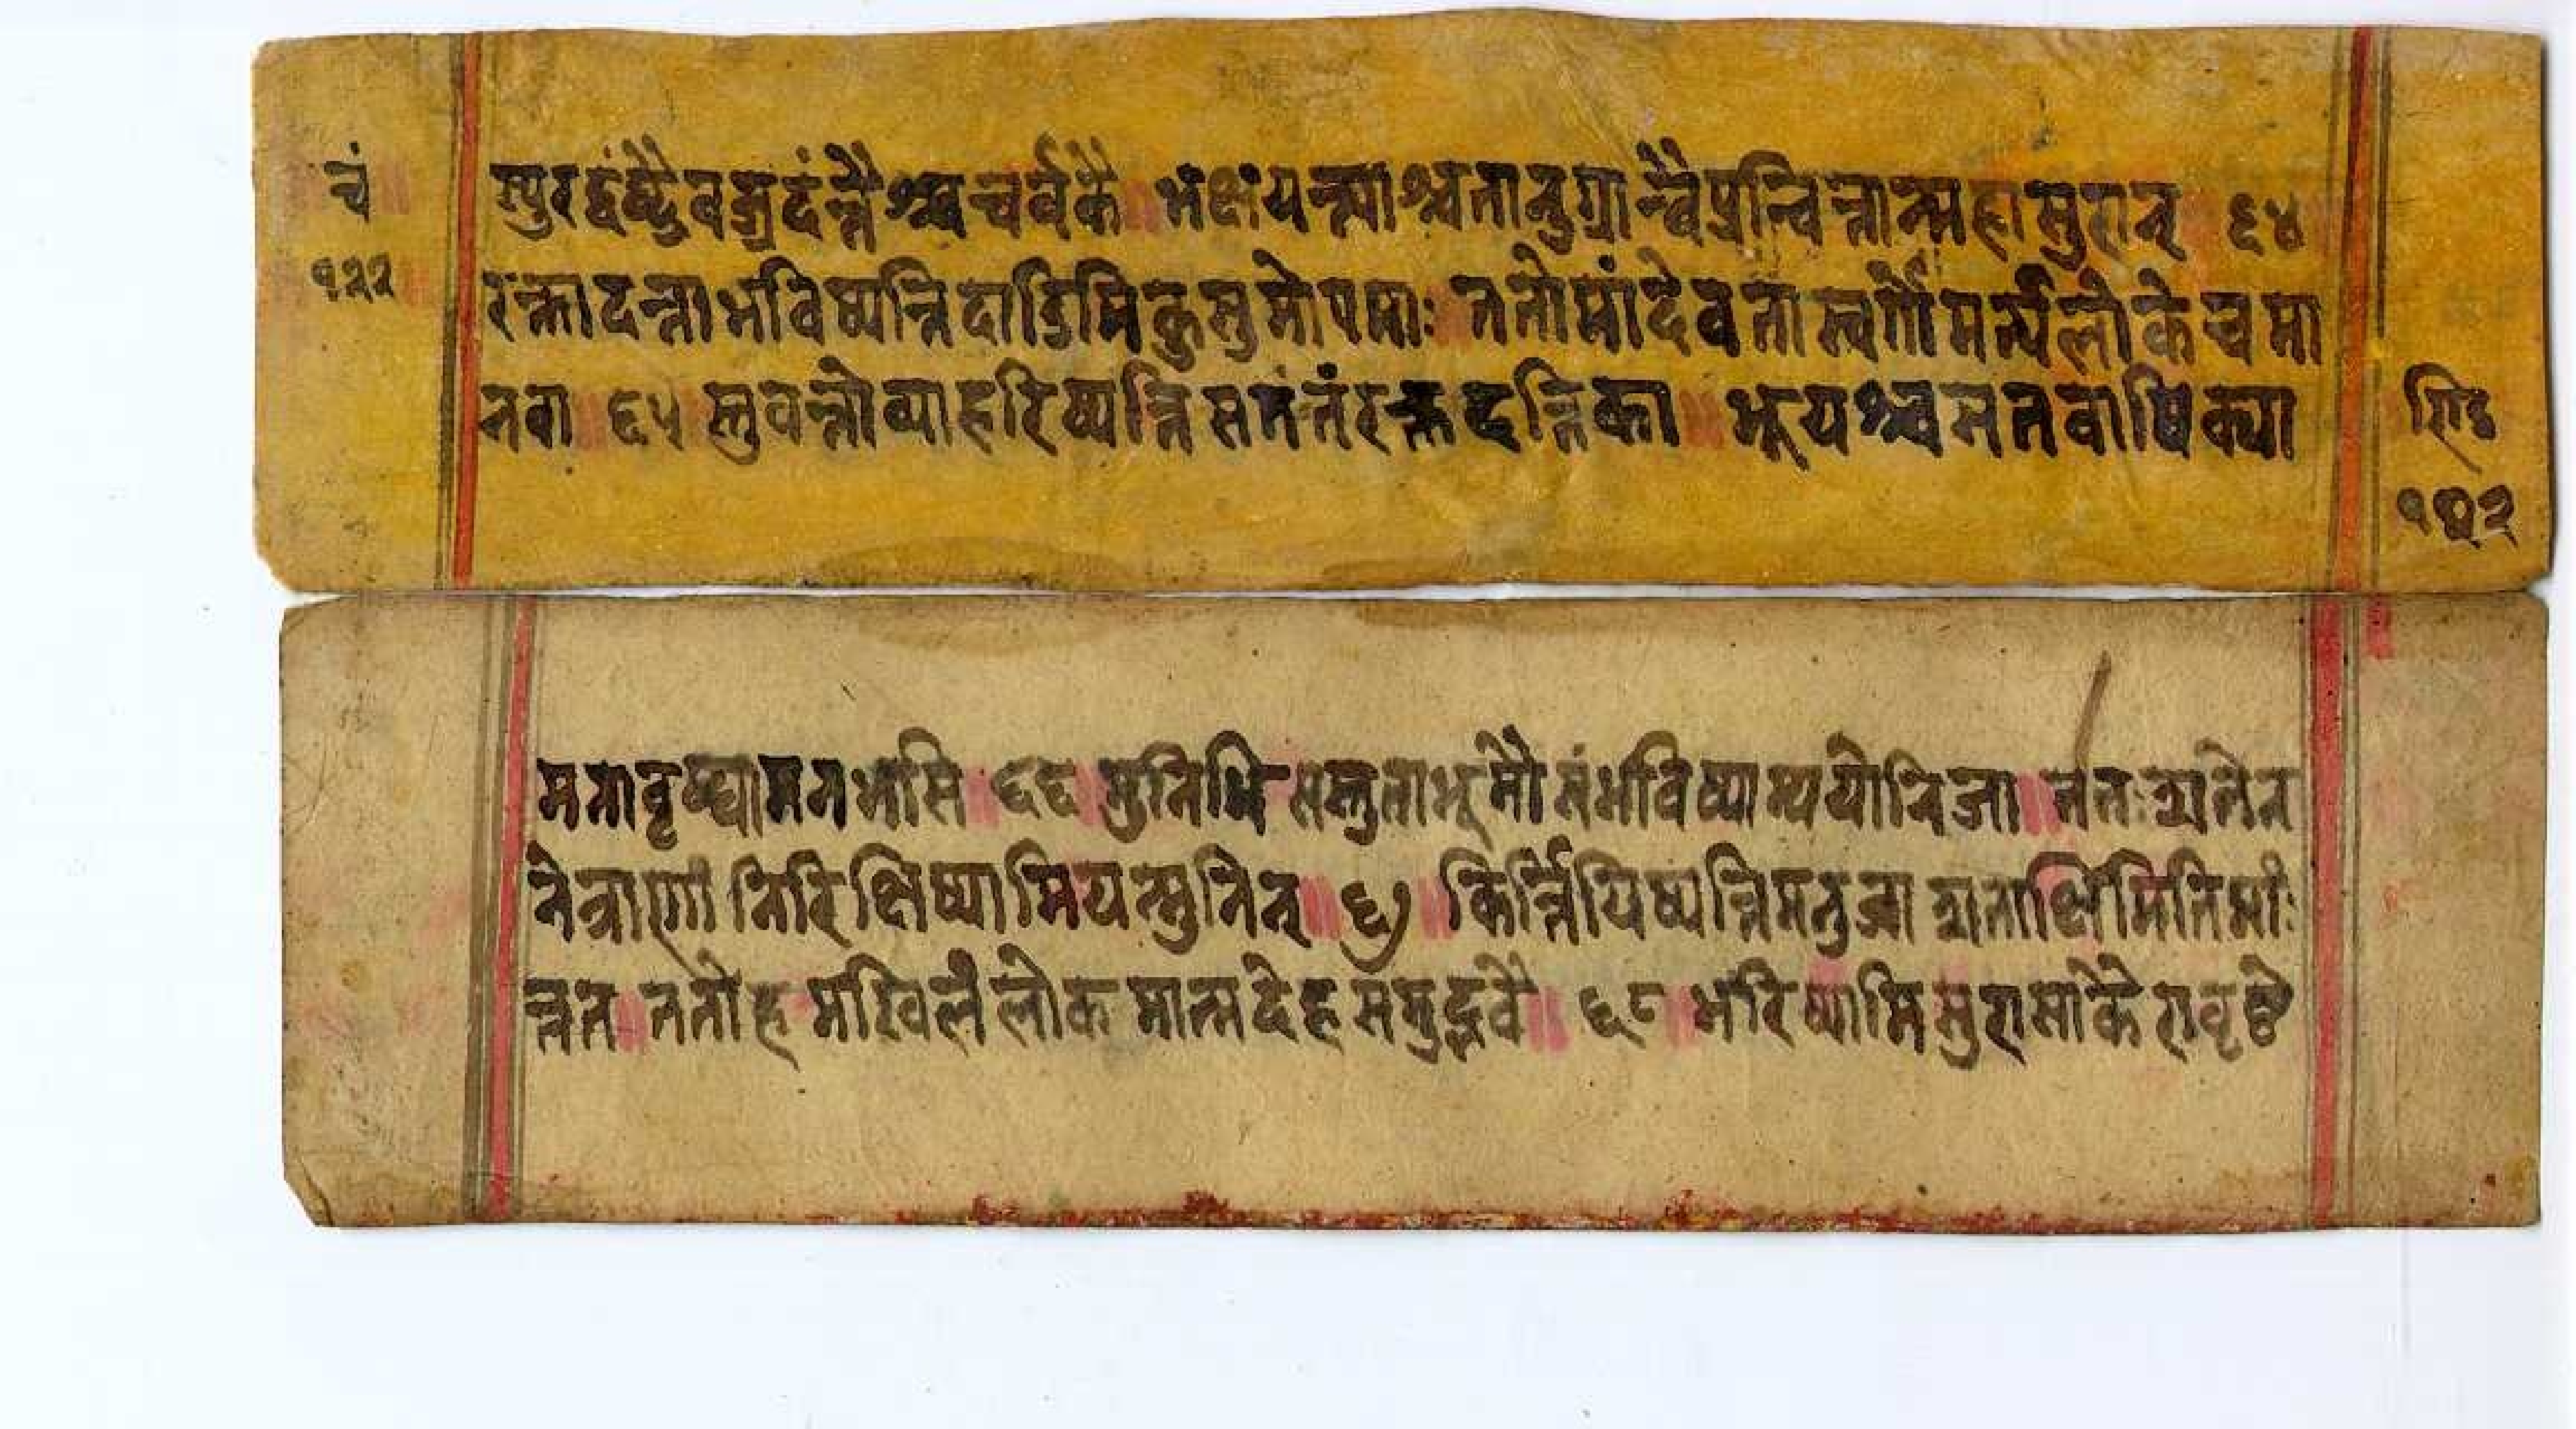 चं
१२२
स्पुरद्दंष्ट्रैवज्रदंन्तैश्च चर्वकै भक्षयन्त्याश्चतानुग्रान्वैप्रचित्तान्महासुरान् ६४
रक्तादन्ताभविष्यन्तिदाडिमिकुसुमोपमाः ततोमांदेवतास्वर्गौमर्त्यलोके च मा
नवा ६५ स्तुवन्तोव्याहरिष्यन्तिसततंरक्तदन्तिका भूयश्चसतवार्षिक्या
१२२
मनावृष्ट्यामनभसि ६६ मुनिभिसस्तुताभूमौसंभविष्याम्ययोनिजा ततःशतेन
नेत्राणां निरिक्षिष्यामियन्मुनिन् ६७ किर्त्तयिष्यन्तिमनुजा शताक्षिमितिमांः
न्तत ततोहमखिलं लोकमात्मदेहसमुद्भवै ६८ भरिष्यामिसुरासाकैरावृष्टे